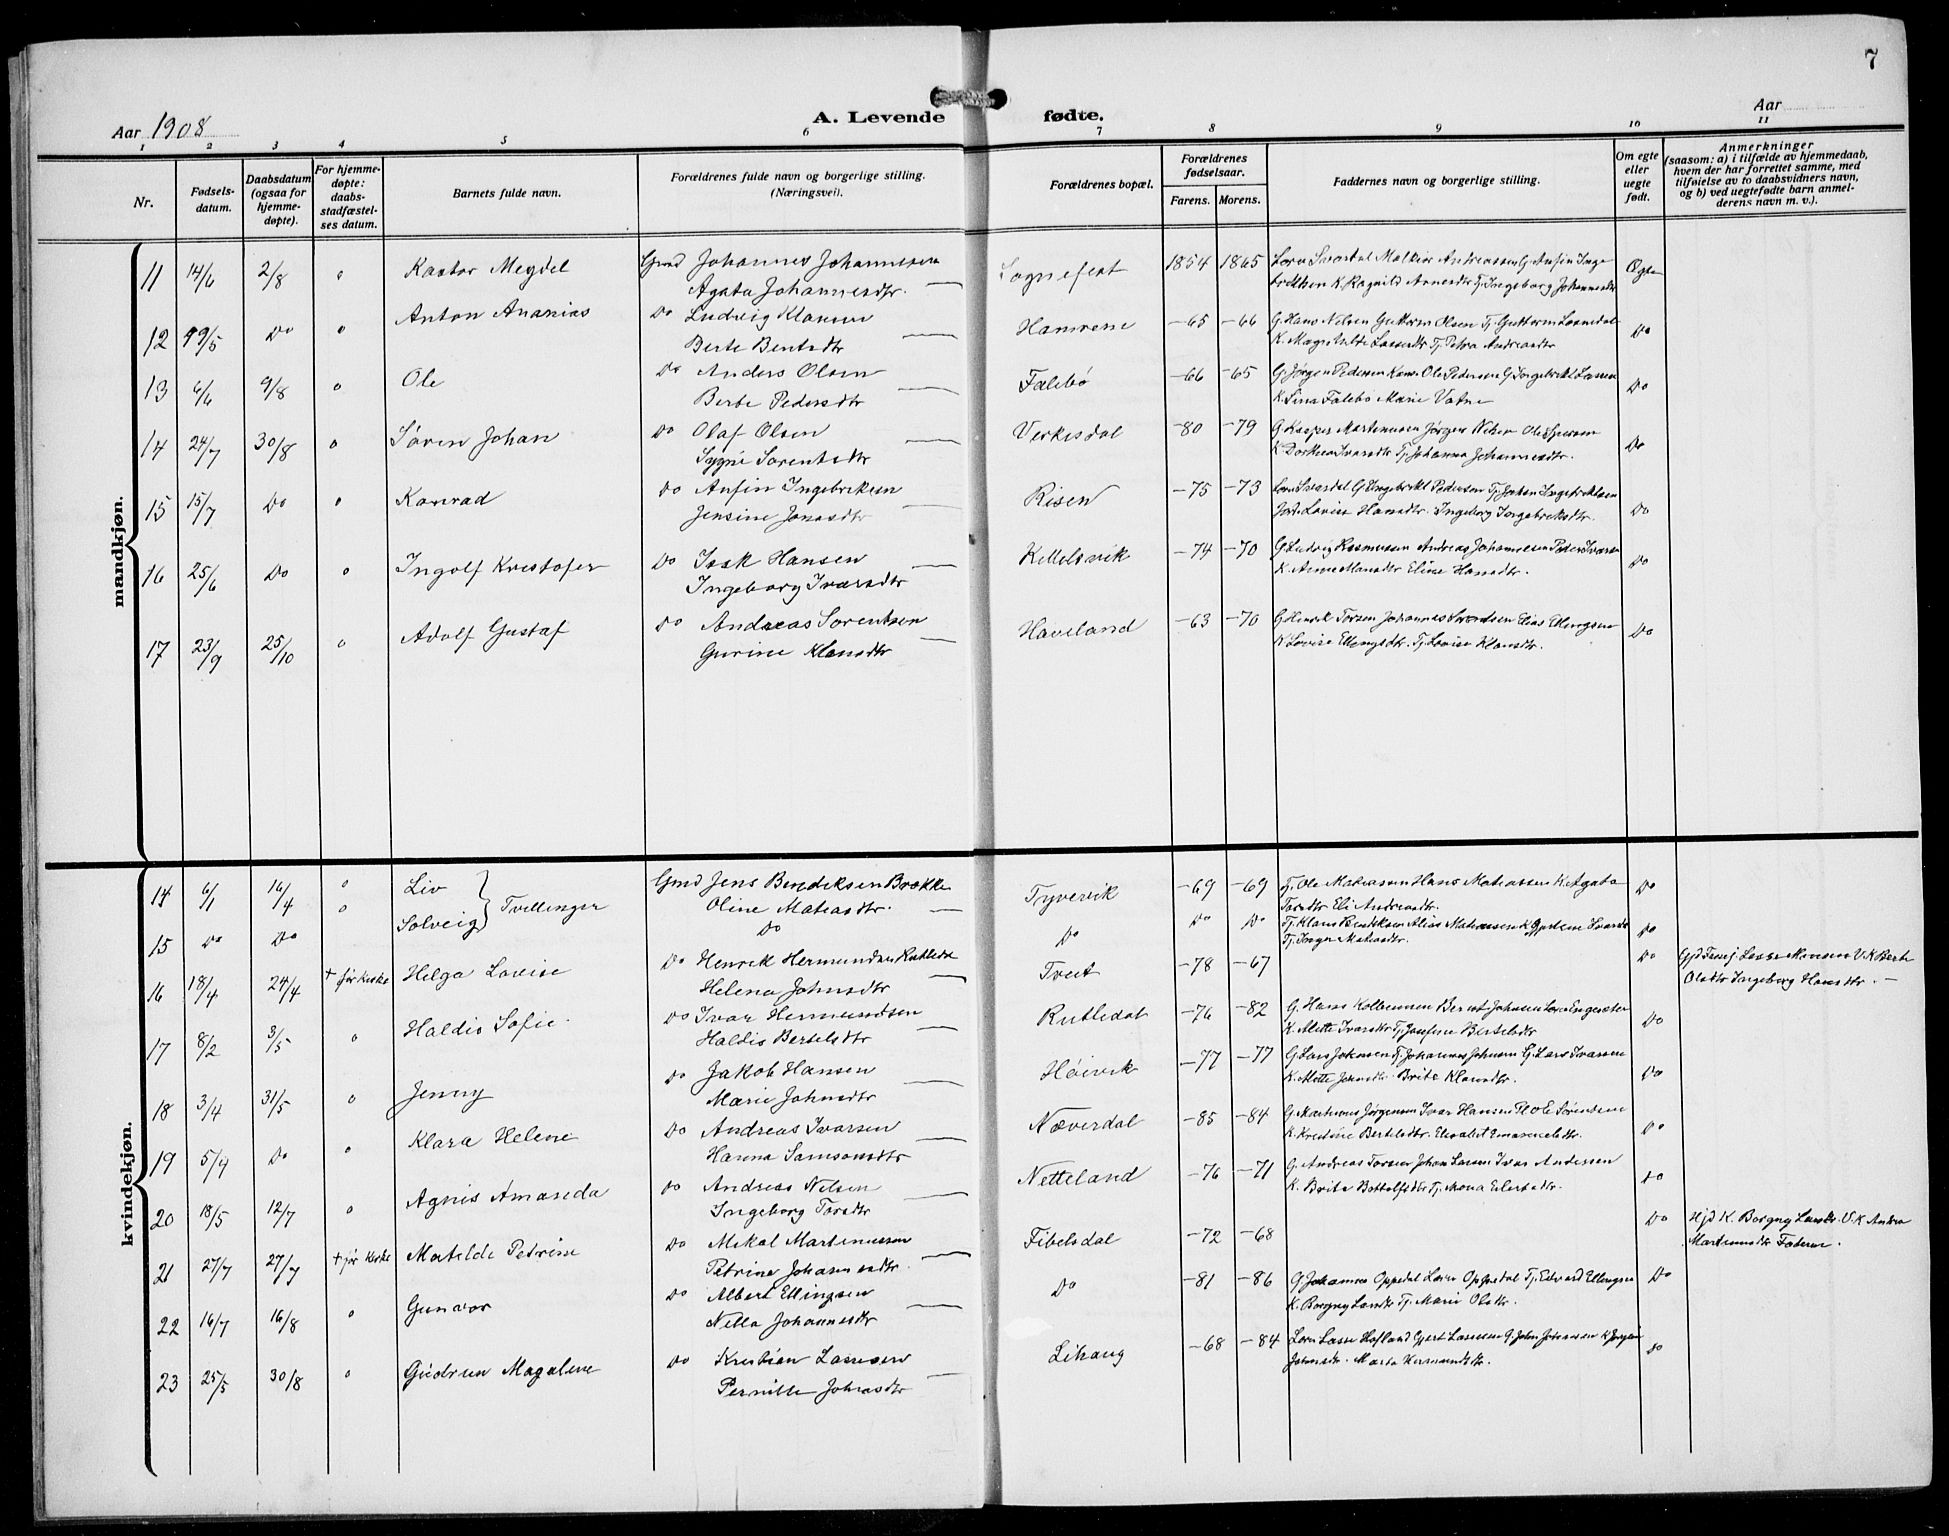 7
Aar 1908
A. Levende fødte.
Aar
1 2 3 4 5 6 7 8 9 10 11
Nr.
Fødsels-
datum.
Daabsdatum
(ogsaa for
hjemme-
døpte).
For hjemme-
døpte:
daabs-
stadfæstel-
ses datum.
Barnets fulde navn.
Forældrenes fulde navn og borgerlige stilling.
(Næringsveil).
Forældrenes bopæl.
Forældrenes
fødselsaar.
Farens. Morens.
Faddernes navn og borgerlige stilling.
Om egte
eller
uegte
født.
Anmerkninger
(saasom: a) i tilfælde av hjemmedaab,
hvem der har forrettet samme, med
tilføielse av to daabsvidners navn,
og b) ved uegtefødte barn anmel-
derens navn m. v.).
mandkjøn.
11 14/6 2/8 " Kastor Megdel Gmd Johannes Johannesen Sognefest 1854 1865 Andreassen G. Anfin Inge
Agata Johannesdtr. — brektsen K. Ragnild Arnesdtr Tj. Ingeborg Johannesdtr Egte
12 Do " Anton Ananias Do Ludvig Klausen Hamrene -65 -66 G. Hans Nilsen Guttorm Olsen Tj. Guttorm
Berte Bentsdtr K. Lassedtr Tj. Petra Andreasdtr Do
13 6/6 9/8 " Ole Do Anders Olsen Falebø -66 -65 G. Jørgen Pedersen Ole Pedersen G. Ingebrikt Lassen
Berte Pedersdtr — K. Sina Falebø Marie Vatne Do
14 24/7 30/8 " Søren Johan Do Olaf Olsen Verkesdal -80 -79 G. Kasper Martinussen Jørgen Nilsen
Sygni Sorentsdtr — Ivarsdtr Tj. Johanna Johannesdtr. Do
15 15/7 Do " Konrad Do Anfin Ingebriktsen Risen -75 -73 G. Ingebrikt Pedersen Tj. Johan Ingebriktsen
Jensine Jonasdtr — Lovise Hansdtr. Ingeborg Ingebriktsdtr. Do
16 25/6 Do " Ingolf Kristofer Do Isak Hansen Kittelsvik -74 -70 G. Ludvig Rasmussen Andreas Johannesen Peder Ivarsen
Ingeborg Ivarsdtr — K. Anne Hansdtr Eline Hansdtr. Do
17 23/9 25/10 " Adolf Gustaf Do Andreas Sorentsen Haveland -63 -70 G. Henrik Torsen Johannes Elias Ellingsen
Gurine Klausdtr — K. Lovise Ellingsdtr. Tj. Lovise Klausdtr. Do
kvindekjøn.
14 6/1 16/4 " Liv Gmd Jens Bendiksen Brække Tyvervik -69 -69 Tj. Ole Matiassen Hans Matiassen K. Agata
Tvillinger Oline Matiasdtr. — Torsdtr Eli Andreasdtr Do
15 Do Do " Solveig Do Do Do Do Tj. Klaus Bendiksen Elias Matiassen K.
Tj. Inger Matiasdtr. Do
16 18/4 24/4 + før kirke Helga Lovise Do Henrik Hermundsen Tveit -78 -67 Do
Helena Johnsdtr Olsdtr Ingeborg Hansdtr. —
17 8/2 3/5 " Haldis Sofie. Do Ivar Hermundsen Rutledal -76 -82 G. Hans Kolbeinsen Bernt Johnsen
Haldis Bertelsdtr — K. Alette Ivarsdtr Tj. Josefine Bertelsdtr Do
18 3/4 31/5 " Jenny Do Jakob Hansen Høivik -77 -77 G. Lars Johnsen Tj. Johannes Johnsen G. Lars Ivarsen
Marie Johnsdtr — K. Mette Johnsdtr. Brita Klausdtr. Do
19 5/4 Do " Klara Helene Do Andreas Ivarsen Næverdal -85 -84 G. Martinus Jørgensen Ivar Hansen
Hanna Samsonsdtr — K. Kristine Bertelsdtr. Do
20 18/5 12/7 " Agnis Amanda Do Andreas Nilsen Netteland -76 -71 G. Andreas Torsen Johan Larsen Ivar Andersen
Ingeborg Torsdtr — K. Brita Bottolfsdtr Tj. Mona Eilertsdtr. Do
21 27/7 27/7 + før kirke Matilde Petrine Do Mikal Martinussen Fibelsdal -72 -68 Do Hjd K. Borgny V. K. Andrea
Petrine Johannesdtr. — Martinusdtr Faderen.
22 16/7 16/8 " Gunvor Do Albert Ellingsen Do -81 -86 G. Johannes Oppedal Oppedal Tj. Edvard Ellingsen Do
Nella Johannesdtr — K. Borgny Tj. Marie Olsdtr.
23 25/5 30/8 " Gudrun Magalene Do Kristian Lassesen Lihaug -68 -84 Lasse Hofland Gjert Lassesen G. John Johnsen K.
Pernille Johnsdtr — Johnsdtr. Marta Hermundsdtr. Do